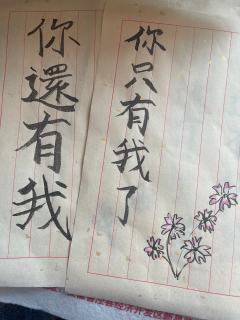 你還有我
你只有我了